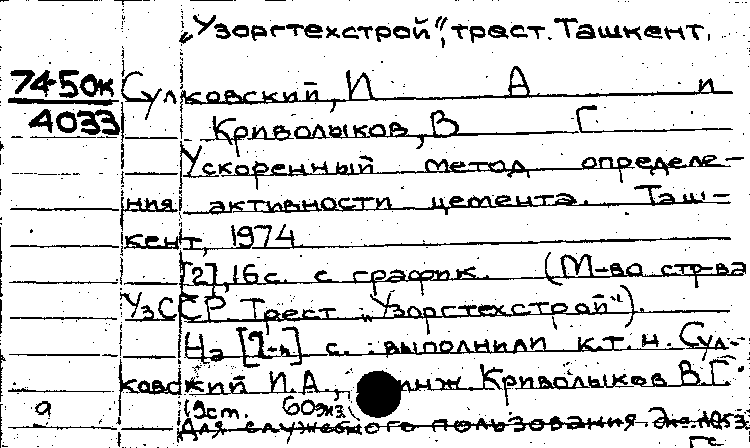 „Узоргтехстрой", трест. Ташкент.
74-50к Сулковский, И А и
4033 Криволыков, В Г
Ускоренный метод определе-
ния активности цемента. Таш-
кент, 1974
[2], 16 с. с график. (М-во стр-ва
УзССР. Трест „Узоргтехстрой").
На с. : выполнили к.т.н. Сул-
ковский И.А., инж. Криволыков В.Г.
9 60 экз
Для служебного пользования. Экз.